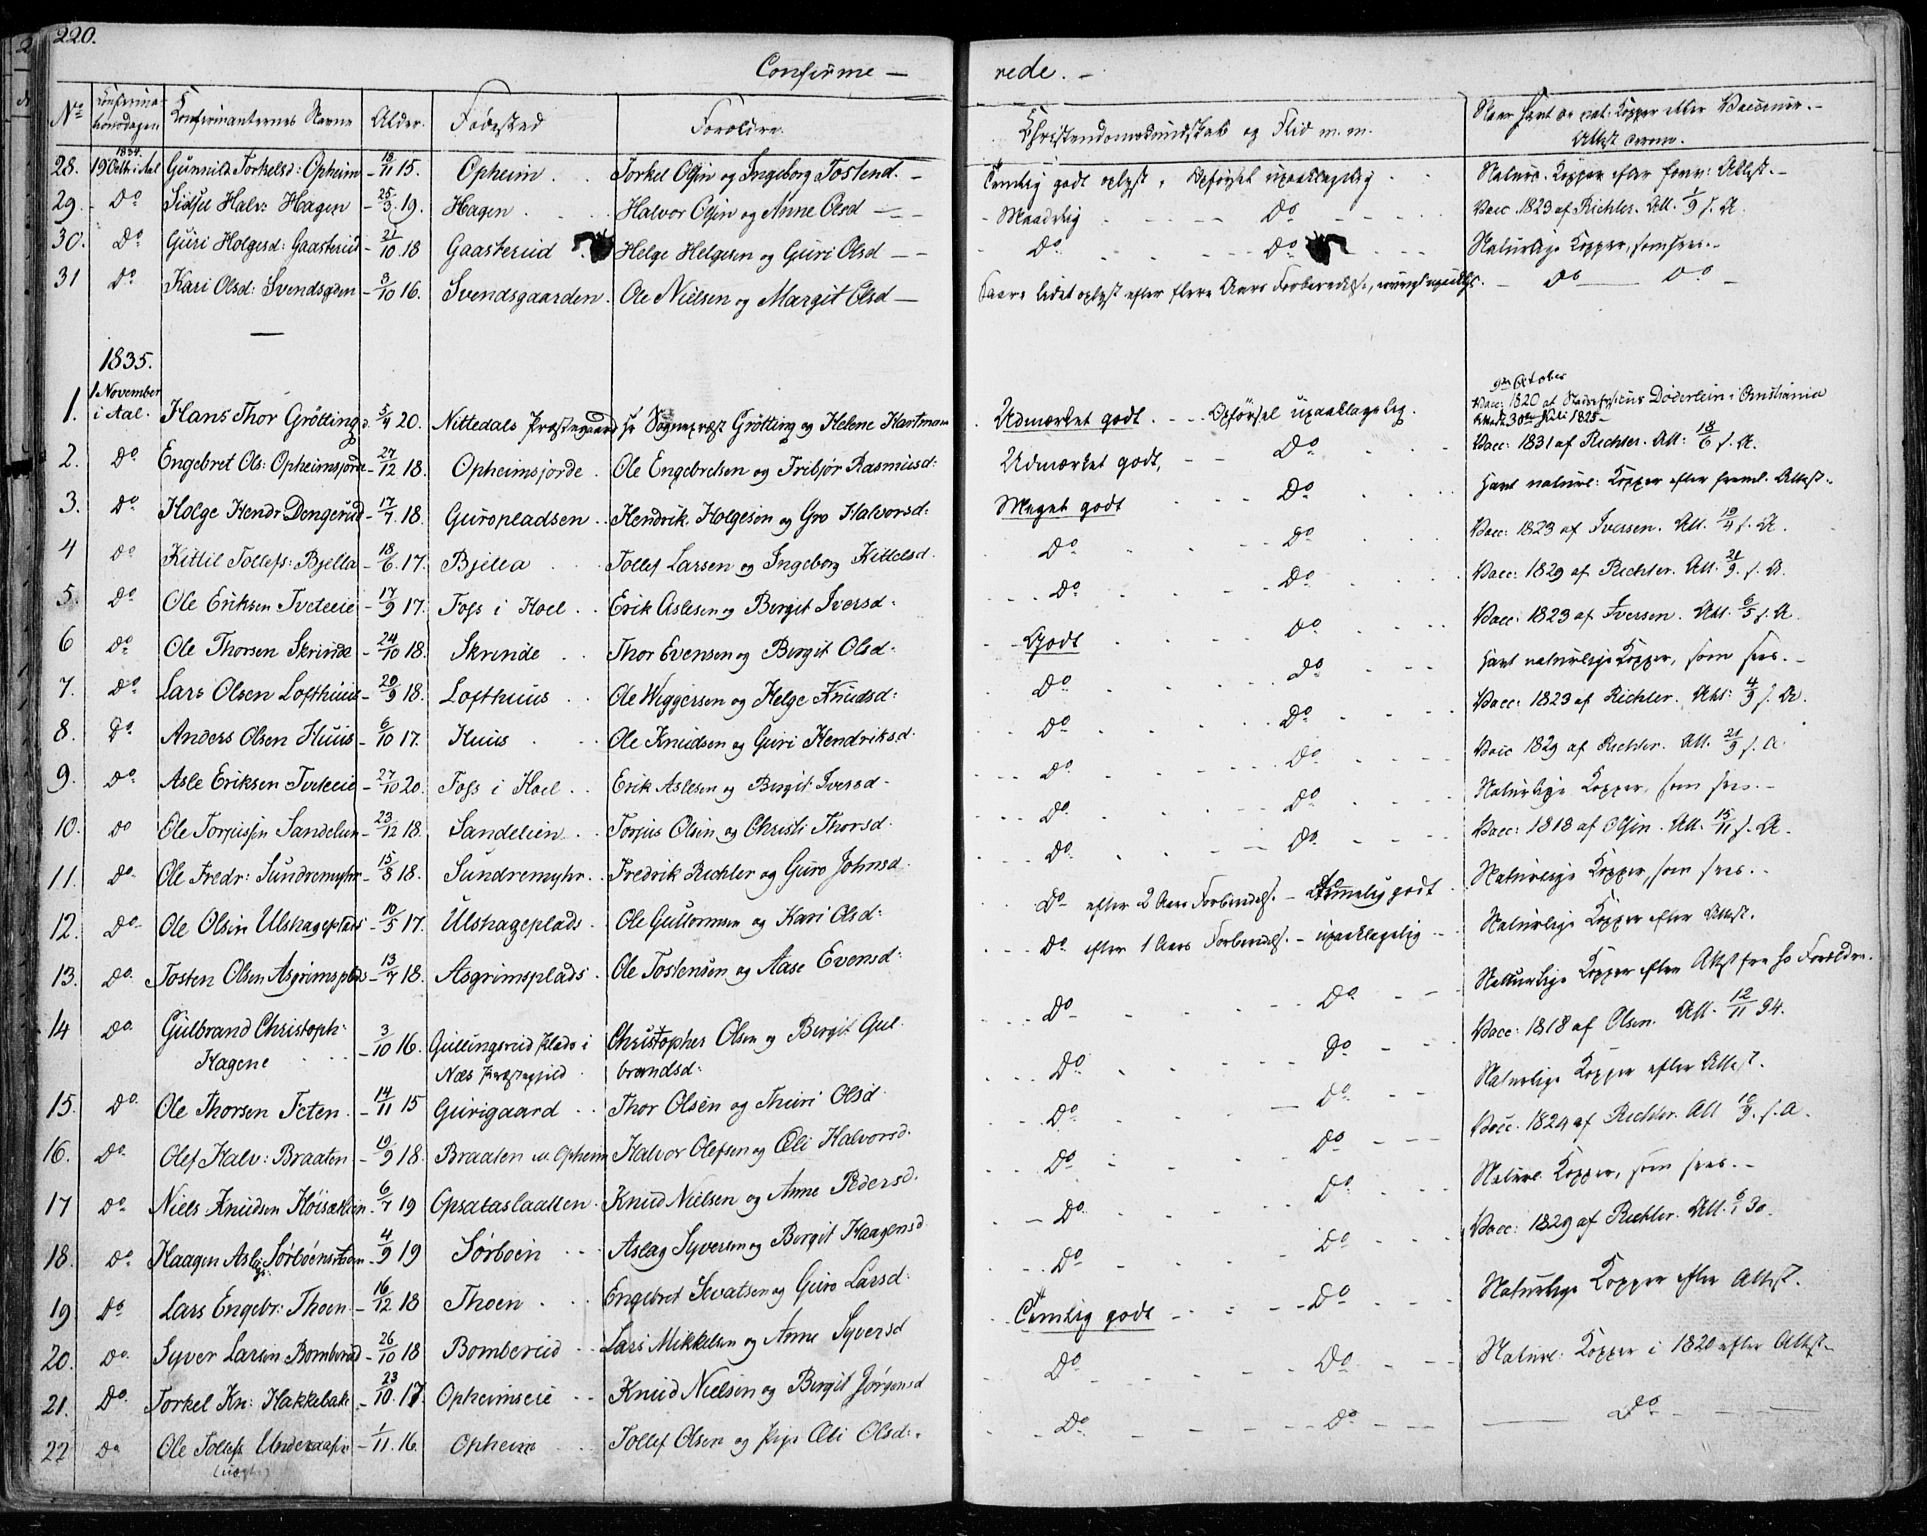 220.
Confirme — rede. —
No Confirmationsdagen Konfirmanternes Navne Alder. Fødested Forældre. Christendomskundskab og Flid m. m. Naar havt de nat. Kopper eller Vaccinerede.
Attest derom.
28. 1834. 19 Octb. i Aal Gunnild Torkelsd: Opheim 18/11 15. Opheim Torkel Olsen og Ingeborg Tostend. — Temlig godt oplyst, Opførsel upaaklagelig Naturl. Kopper efter Attest. —
29. Do Sidsel Halv: Hagen 25/3. 19. Hagen. Halvor Olsen og Anne Olsd — Maadelig Do Vacc. 1823 af Richter. Att. 1/9 s. A.
30. Do Guri Holgesd: Gaasterud 21/10 18 Gaasterud Helge Helgesen og Guri Olsd — Do Do Naturlige Kopper, som sees. —
31 Do Kari Olsd: Svendsgden 3/10 16. Svendsgaarden. Ole Nielsen og Margit Olsd — Saare lidet oplyst efter flere Aars Forberedelse, Do — Do —
1835.
1. 1 November i Aal. Hans Thor Grötting 5/4 20. Nittedals Præstegaard Hr Sogneprest Grötting og Helene Hartmann Udmærket godt. Opførsel upaaklagelig. Vacc: 1820 af Döderlein i Christiania 9de October Attest 30te Juli 1825 —
2. Do Engebret Ols: Opheimsjorde 27/12 18. Opheimsjorde Ole Engebretsen og Tribjør Rasmusd: Udmærket godt, Do Vacc: 1831 af Richter. Att: 18/6 s. A.
3. Do Holge Hendr: Dengerud 17/7 18. Guropladsen Hendrik Holgesen og Gro Halvorsd: Meget godt Do Havt naturl: Kopper efter freml. Attest.
4 Do Kittil Tollefs: Bjella 18/6. 17. Bjella Tollef Larsen og Ingeborg Kittelsd. Do Do Vacc: 1823 af Iversen. Att. 10/4 s. A.
5. Do Ole Eriksen Tveteeie 17/9 17. Foss i Hoel Erik Aslesen og Bergit Iversd: Do Do Vacc: 1829 af Richter. Att. 21/9. s. A.
6 Do Ole Thorsen Skrinde 24/10 18. Skrinde Thor Evensen og Birgit Olsd: Godt Do Vacc: 1823 af Iversen. Att. 6/5 s. A.
7. Do Lars Olsen Lofthuus 20/9 18. Lofthuus Ole Wiggersen og Helge Knudsd: Do Do Havt naturlige Kopper, som sees. —
8. Do Anders Olsen Huus 6/10 17. Huus Ole Knudsen og Guri Hendriksd. Do Do Vacc: 1823 af Richter. Att: 4/9 s. A.
9. Do Asle Eriksen Tveteeie 27/10 20. Foss i Hoel Erik Aslesen og Birgit Iversd. Do Do Vacc 1829 af Richter. Att. 21/9 s. A.
10. Do Ole Torjussen Sandelien 23/12 18. Sandelien Torjus Olsen og Christi Thorsd. Do Do Naturlige Kopper, som sees. —
11. Do Ole Fredr: Sundremyhr 15/8 18. Sundremyhr. Fredrik Richter og Guro Johnsd. Do Do Vacc: 1818 af Olsen. Att. 15/11 s. A.
12. Do Ole Olsen Ulshageplads 10/5 17. Ulshageplads Ole Guttormsen og Kari Olsd: Do efter 2 Aars Forberedels. — Temmelig godt Naturlige Kopper, som sees. —
13. Do Tosten Olsen Asgrimsplads 13/7 18. Asgrimsplads Ole Tostensen og Aase Evensd: Do efter 1 Aars Forberedels. — upaaklagelig Naturlige Kopper efter Attest.
14 Do Gulbrand Christoph: Hagene 3/10 16. Gullingsrud Plads i Næs Præstegjeld Christopher Olsen og Bergit Gulbrandsd: Do Do Naturlige Kopper efter Attest fra Forældre.
15. Do Ole Thorsen Teten 14/11 15 Gurigaard Thor Olsen og Thuri Olsd. Do Do Vacc: 1818 af Olsen. Att. 12/11 34.
16. Do Olef Halv: Braaten 19/9 18. Braaten u. Opheim Halvor Olefsen og Eli Halvorsd. Do Do Naturlige Kopper efter Attest.
17 Do Niels Knudsen Höisætlien 6/7 19 Opsataslaatten Knud Nielsen og Anne Pedersd. Do Do Vacc. 1824 af Richter. Att 10/9. s. A.
18. Do Haagen Aslags. Sørboen 4/9 19 Sørboen Aslag Syversen og Bergit Haagensd Do Do Naturl. Kopper, som sees. —
19 Do Lars Engebr: Thoen 16/12 18 Thoen Engebret Sevatsen og Guro Larsd: Do Do Vacc: 1829 af Richter. Att. 6/1 30.
20. Do Syver Larsen Bomberud 26/10 18 Bomberud Lars Mikkelsen og Anne Syversd Temlig godt Do Naturlige Kopper efter Attest.
21. Do Torkel Kn: Hakkebak 23/10. 17. Opheimseie Knud Nielsen og Birgit Jörgensd Do Do Naturl: Kopper i 1820 efter Attest —
22 Do Ole Tollefs. 1/11. 16. Opheim Tollef Olsen og Pige Eli Olsd: Do Do Do